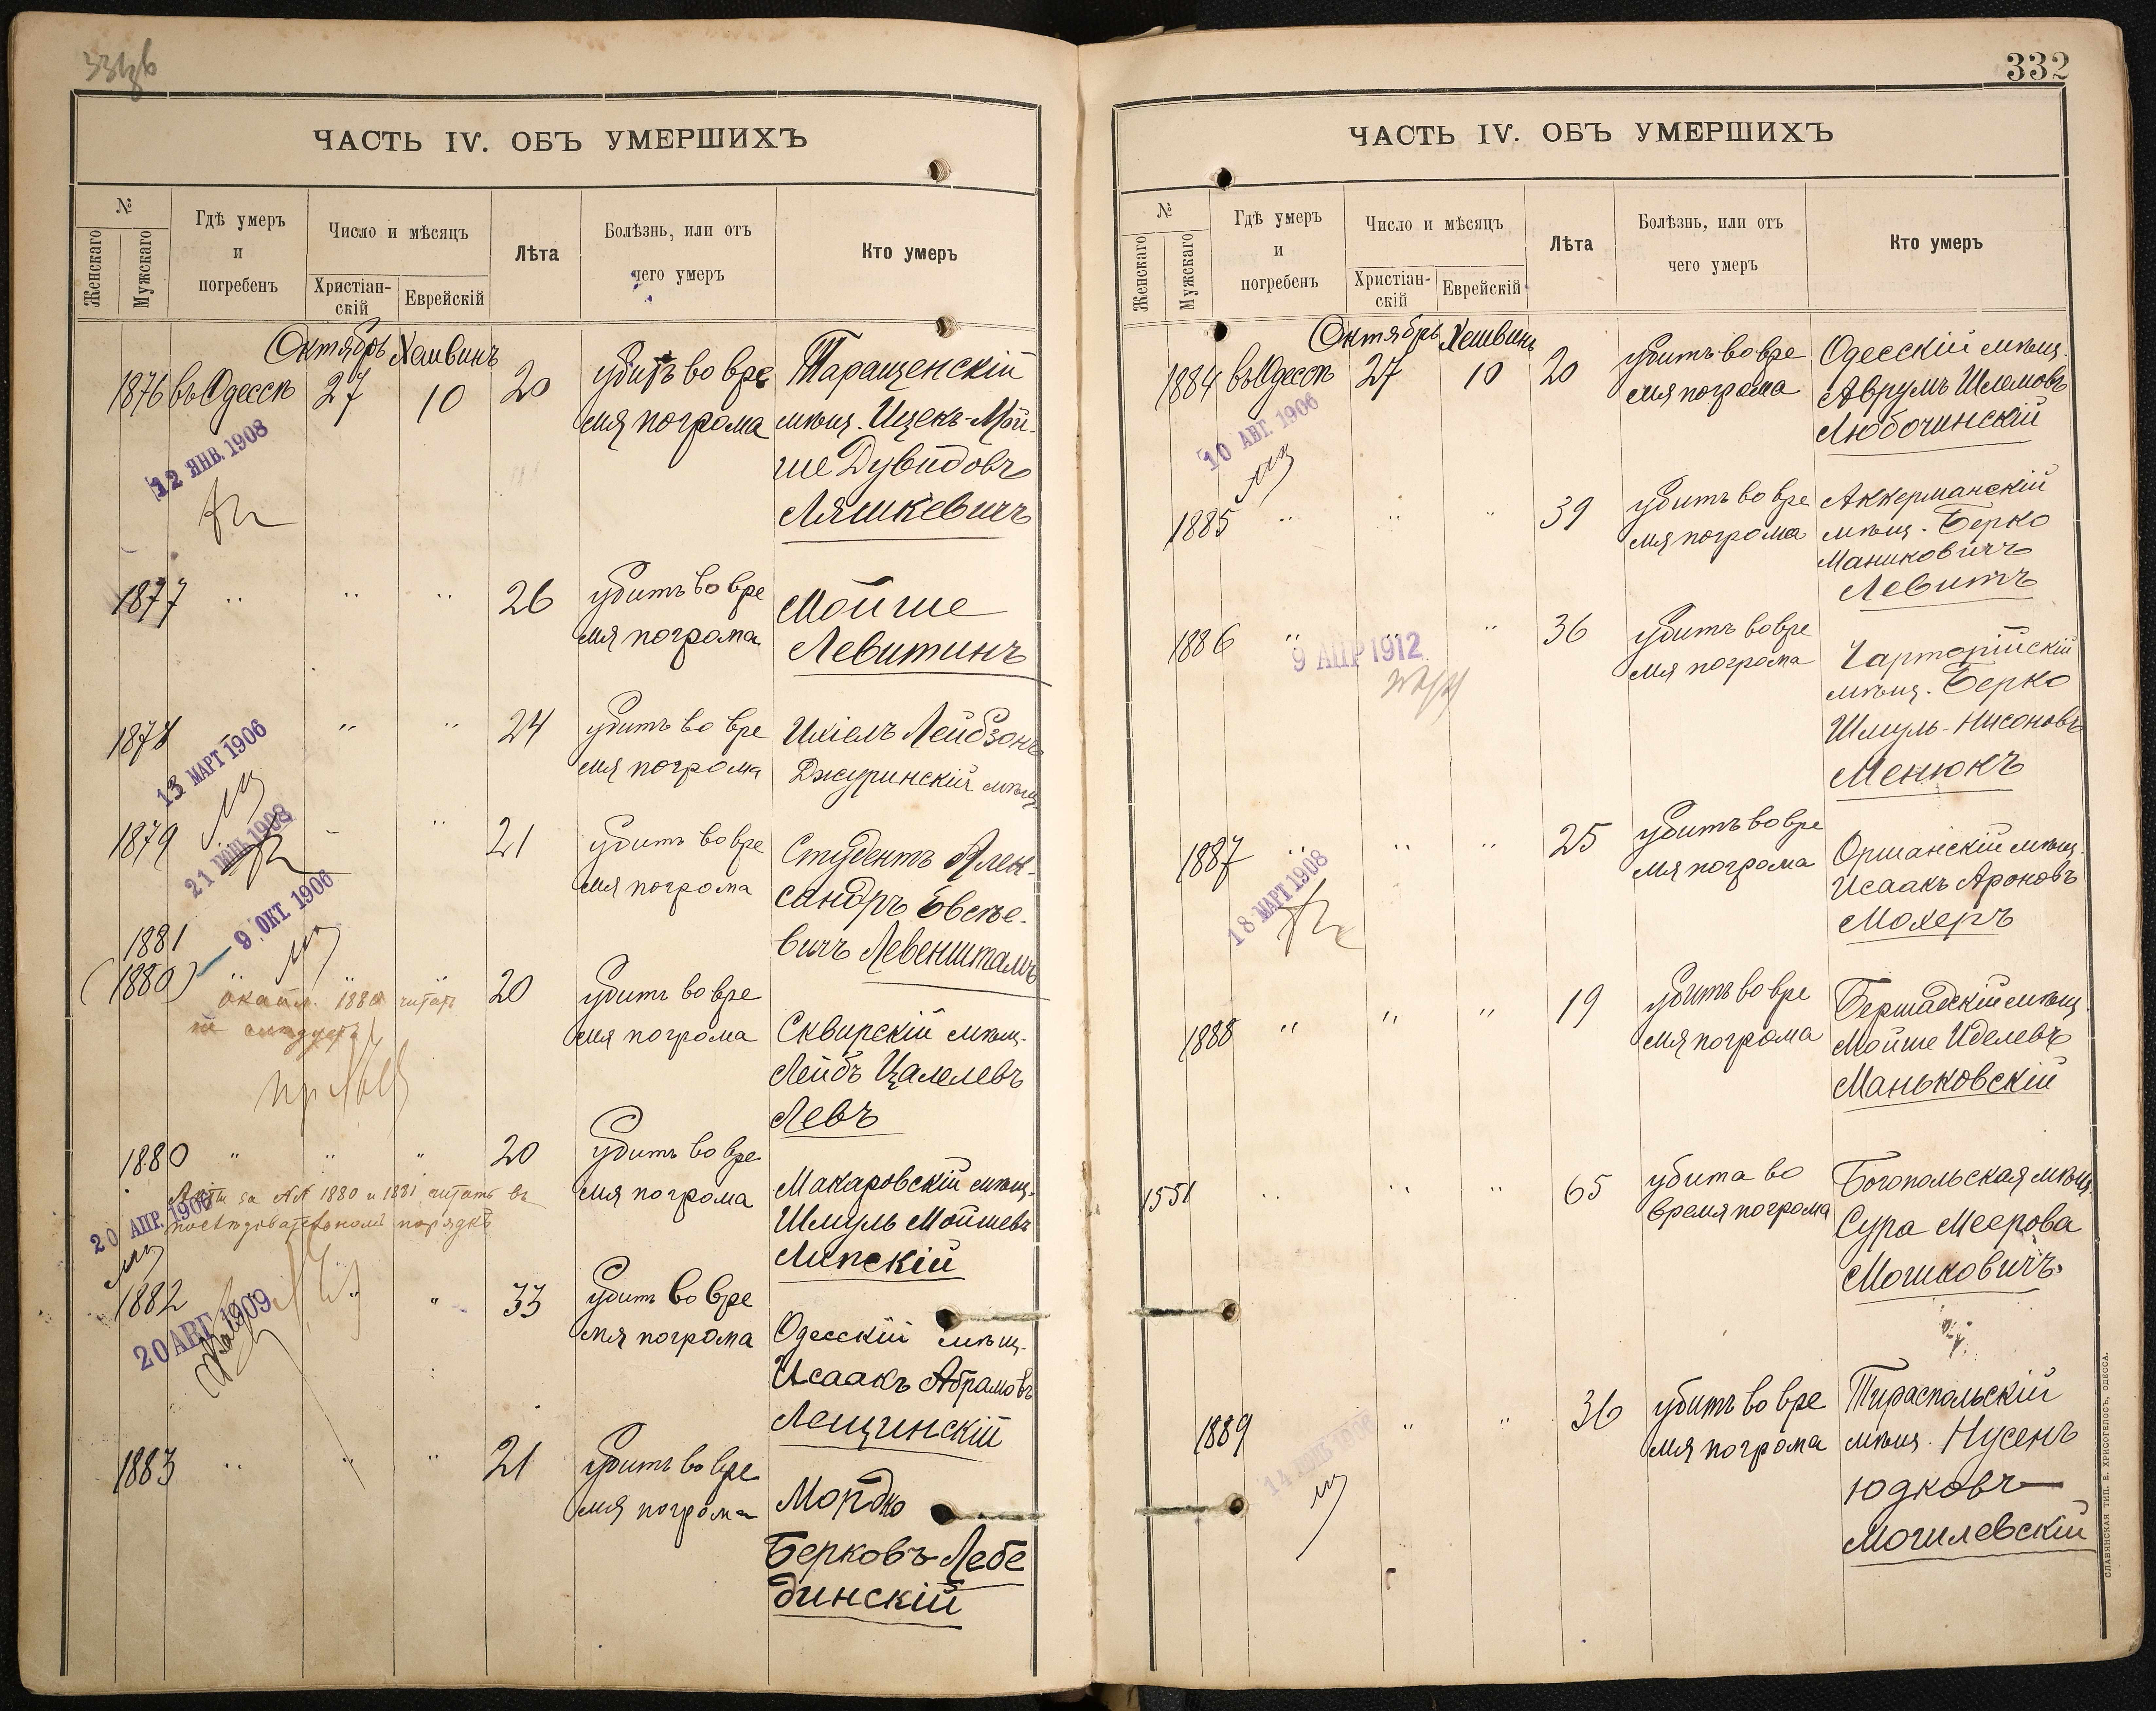 ЧАСТЬ IV. ОБЪ УМЕРШИХЪ
№
Женскаго
Мужскаго
Гдѣ умеръ
и
погребенъ
Число и мѣсяцъ
Христіан-
скій
Еврейскій
Лѣта
Болѣзнь, или отъ
чего умеръ
Кто умеръ
Октябрь Хешвинъ
1876 въ Одессѣ 27 10 20 убитъ во вре Таращенскій
мя погрома мѣщ. Ицекъ-Мой-
ше Дувидовъ
Ляшкевичъ
12 ЯНВ. 1908
1877 " " " 26 убитъ во вре Мойше
мя погрома Левитинъ
1878 " " 24 убитъ во вре Ихіелъ Лейбзонъ
мя погрома Джуринскій мѣщ.
13 МАРТ 1906
1879 " 21 убитъ во вре Студентъ Алек-
мя погрома сандръ Евсѣе-
вичъ Левенштамъ
21 1908
9 ОКТ. 1906
1881
(1880) " " " 20 убитъ во вре
мя погрома Сквирскій мѣщ.
Лейбъ Цалелевъ
Левъ
1880 читать
не слѣдуетъ
1880 " " " 20 убитъ во вре
мя погрома Макаровскій мѣщ.
Шмуль Мойшевъ
Липскій
за №№ 1880 и 1881 читать въ
послѣдовательномъ порядкѣ
20 АПР. 1906
1882 " " 33 убитъ во вре
мя погрома Одесскій мѣщ.
Исаакъ Абрамовъ
Лещинскій
20 АВГ. 1909
1883 " " " 21 убитъ во вре
мя погрома Мордко
Берковъ Лебе
динскій
332
ЧАСТЬ IV. ОБЪ УМЕРШИХЪ
№
Женскаго
Мужскаго
Гдѣ умеръ
и
погребенъ
Число и мѣсяцъ
Христіан-
скій
Еврейскій
Лѣта
Болѣзнь, или отъ
чего умеръ
Кто умеръ
Октябрь Хешвинъ
1884 въ Одессѣ 27 10 20 убитъ во вре Одесскій мѣщ.
мя погрома Аврумъ Шлемовъ
Любочинскій
10 АВГ. 1906
1885 " " " 39 убитъ во вре Аккерманскій
мя погрома мѣщ. Берко
Маниковичъ
Левитъ
1886 " " 36 убитъ во вре
мя погрома Чарторійскій
мѣщ. Берко
Шмуль-Нисоновъ
Менюкъ
9 АПР 1912
1887 " " " 25 убитъ во вре
мя погрома Оршанскій мѣщ.
Исаакъ Ароновъ
Мохеръ
18 МАРТ 1908
1888 " " " 19 убитъ во вре Бершадскій мѣщ.
мя погрома Мойше Иделевъ
Маньковскій
1551 " " " 65 убита во Богопольская мѣщ.
время погрома Сура Меерова
Мошковичъ
1889 " " 36 убитъ во вре Тираспольскій
мя погрома мѣщ. Нусенъ
Юдковъ
Могилевскій
СЛАВЯНСКАЯ ТИП. Е. ХРИСОГЕЛОСЪ, ОДЕССА.